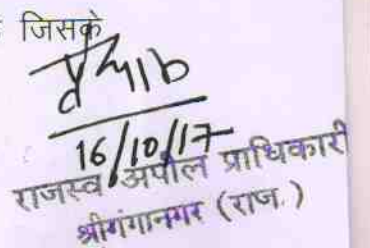 जिसके
16/10/17
राजस्व अपील प्राधिकारी
श्रीगंगानगर (राज.)